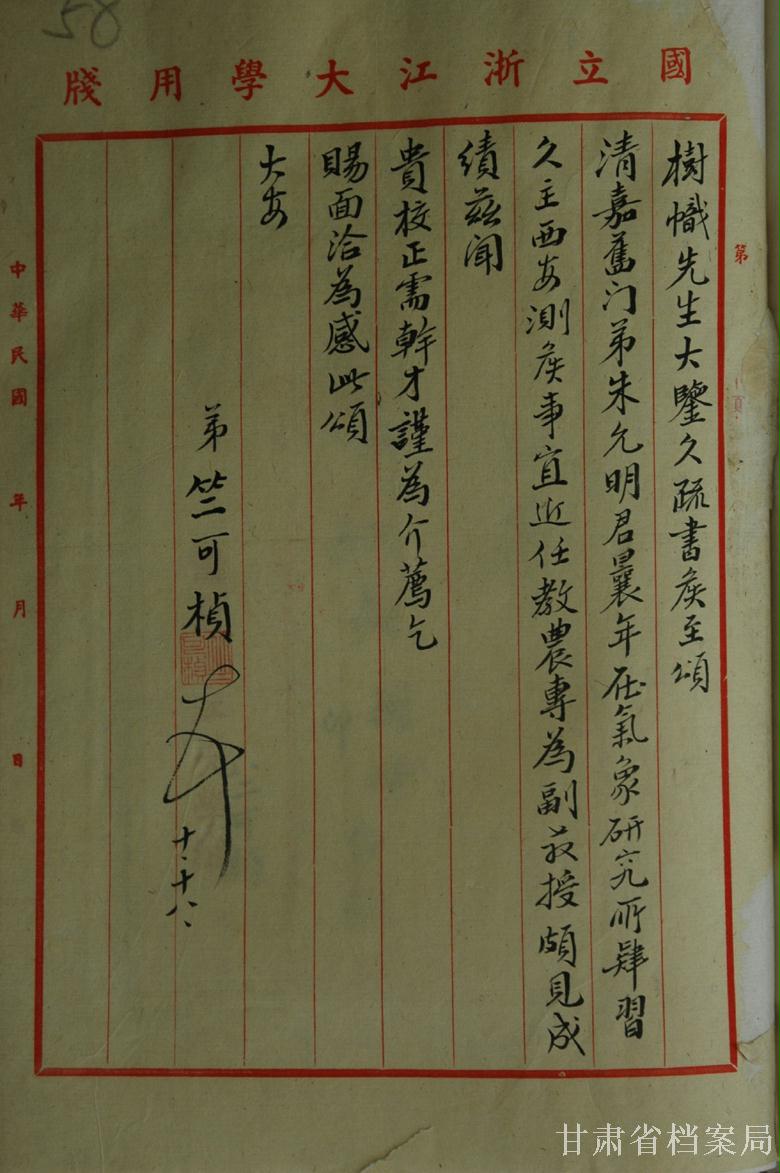 58
國立浙江大學用牋
第
頁
樹幟先生大鑒久疏書矦至頌
清嘉舊门弟朱允明君曩年在氣象研究所肄習
久主西安測矦事宜近任教農專為副教授頗見成
績茲闻
貴校正需幹才謹為介薦乞
賜面洽為感此頌
大安
弟竺可楨
十、十八、
中華民國 年 月 日
甘肃省档案局